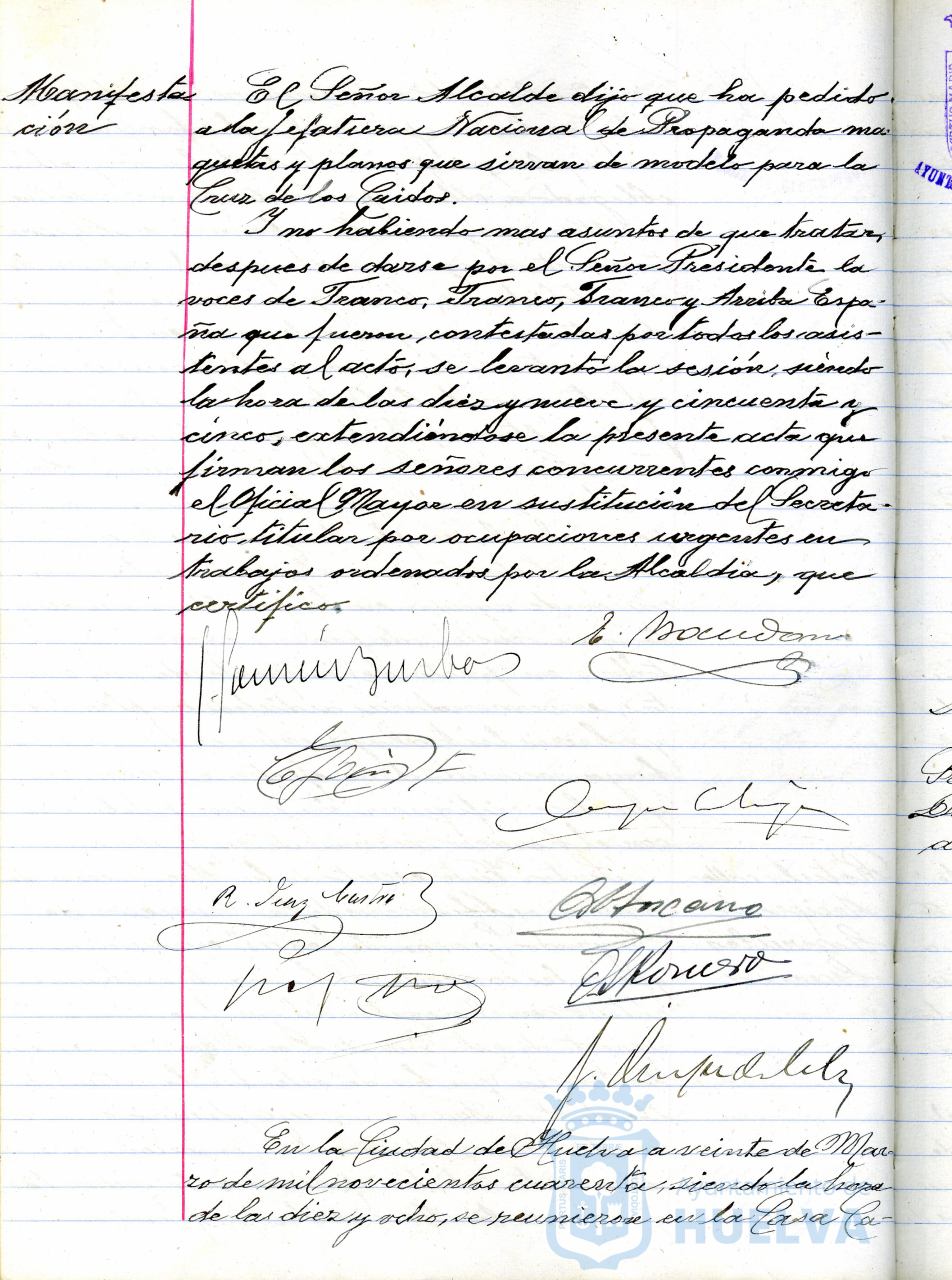 Manifesta-
ción
El Señor Alcalde dijo que ha pedido
a la Jefatura Nacional de Propaganda ma-
quetas y planos que sirvan de modelo para la
Cruz de los Caidos.
Y no habiendo mas asuntos de que tratar,
despues de darse por el Señor Presidente la
voces de Franco, Franco, Franco y Arriba Espa-
ña que fueron contestadas por todos los asis-
tentes al acto, se levantó la sesión, siendo
la hora de las diez y nueve y cincuenta y
cinco, extendiéndose la presente acta que
firman los señores concurrentes conmigo
el Oficial Mayor en sustitución del Secreta-
rio titular por ocupaciones urgentes en
trabajos ordenados por la Alcaldia, que
certifico.
R. Diaz
Romero
En la Ciudad de Huelva a veinte de Mar-
zo de mil novecientos cuarenta, siendo la hora
de las diez y ocho, se reunieron en la Casa Ca-
Ayuntamiento
HUELVA